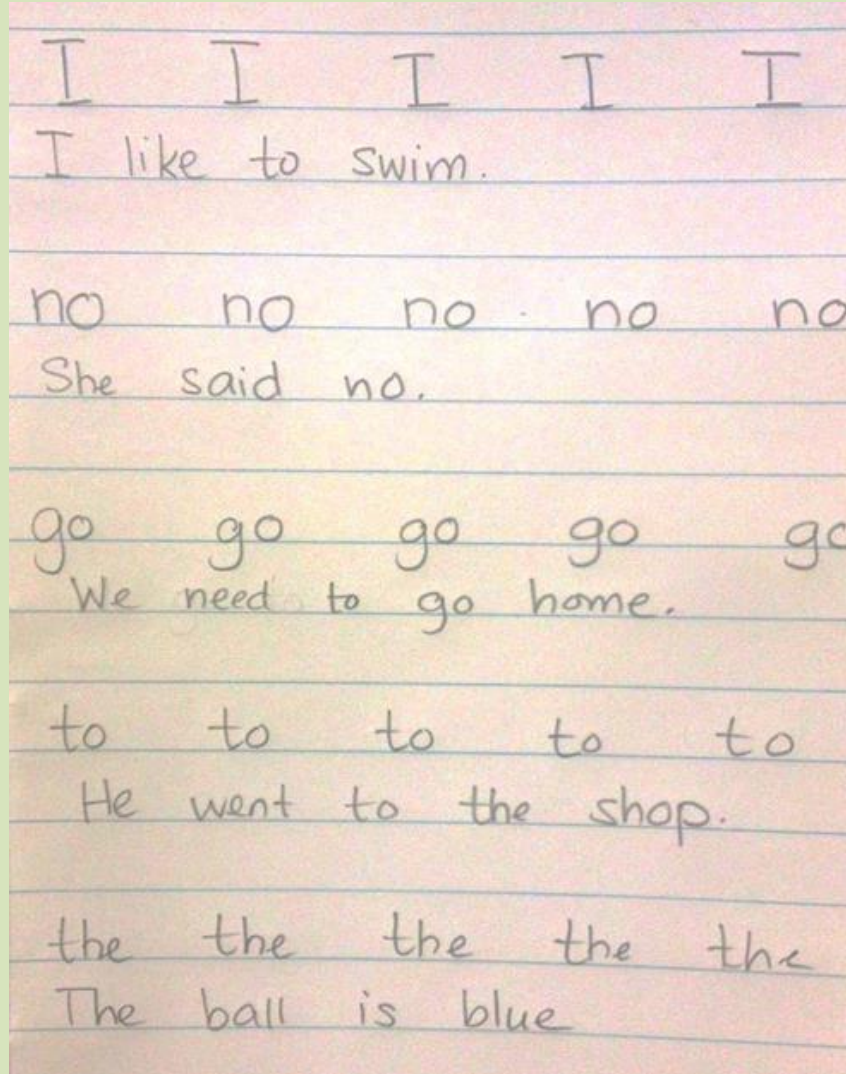 I I I I I
I like to swim.
no no no no no
She said no.
go go go go go
We need to go home.
to to to to to
He went to the shop.
the the the the the
The ball is blue